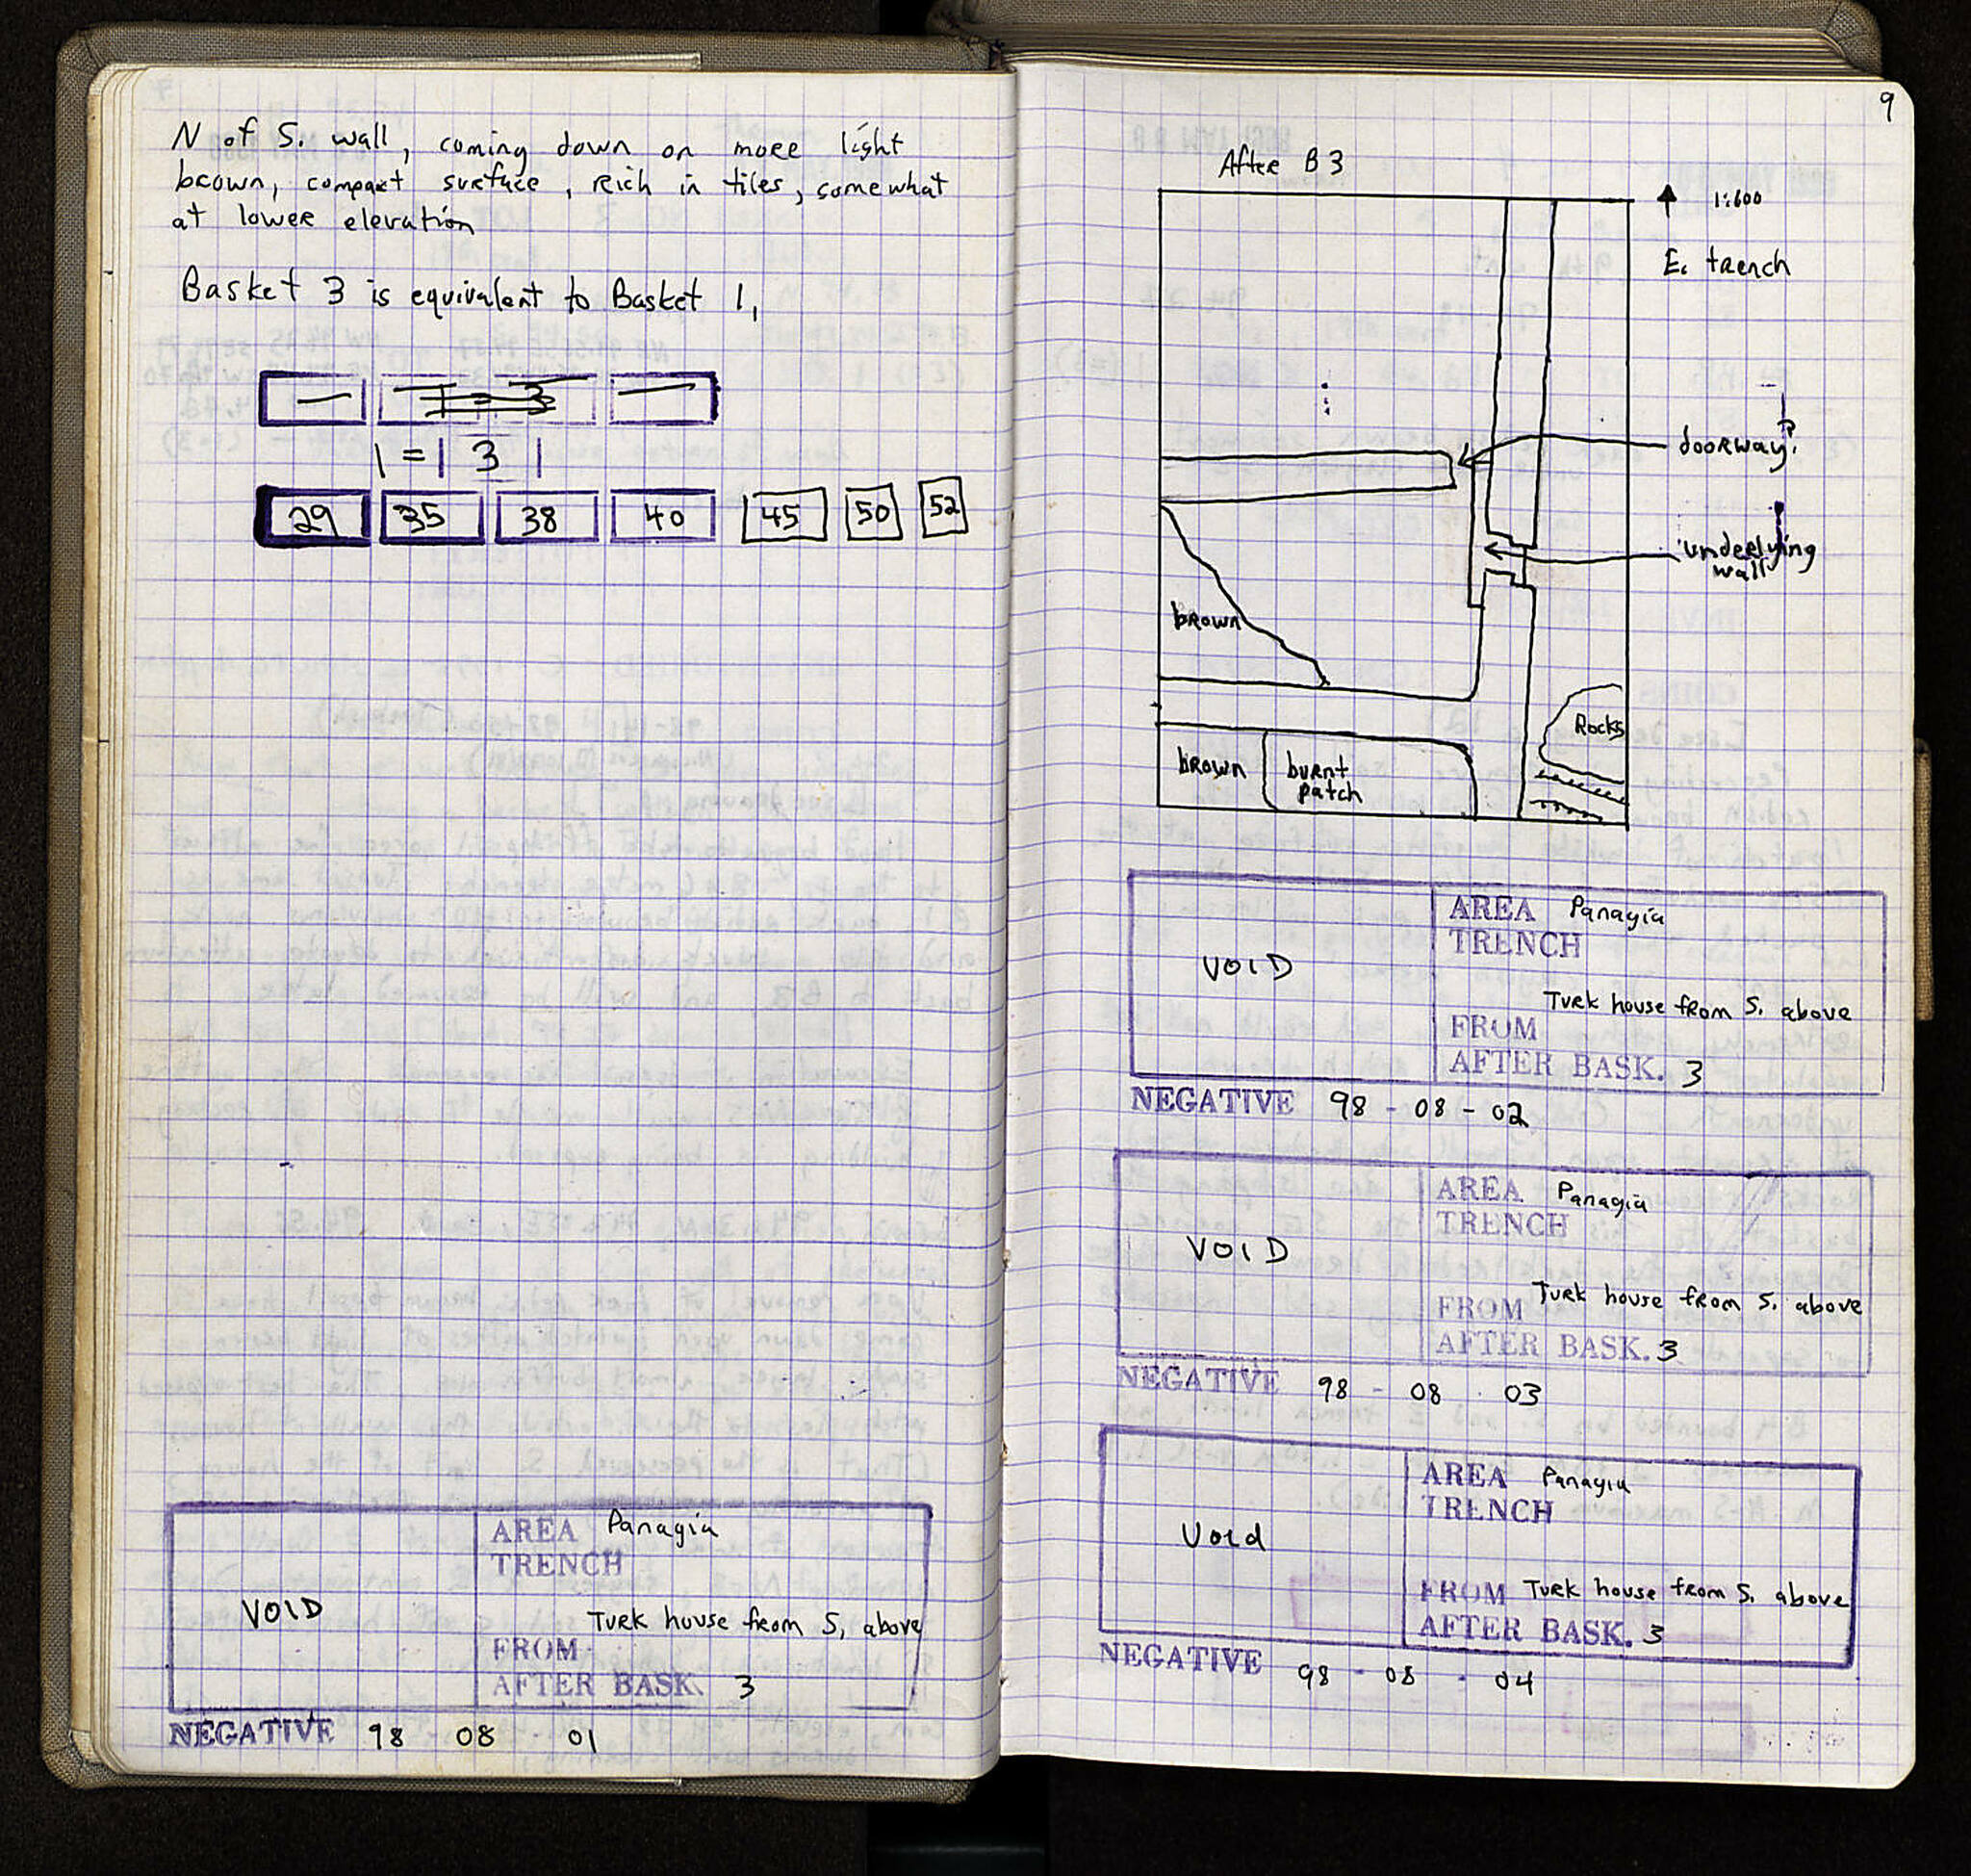 N of S. wall, coming down on more light
brown, compact surface, rich in tiles, somewhat
at lower elevation
Basket 3 is equivalent to Basket 1,
1 = 3
1 = 3
29 35 38 40 45 50 52
VOID
AREA Panagia
TRENCH
Turk house from S, above
FROM
AFTER BASK. 3
NEGATIVE 98 08 01
9
After B3
1:600
E. trench
doorway?
underlying
wall
brown
Rocks
brown
burnt
patch
VOID
AREA Panagia
TRENCH
Turk house from S. above
FROM
AFTER BASK. 3
NEGATIVE 98 - 08 - 02
VOID
AREA Panagia
TRENCH
Turk house from S. above
FROM
AFTER BASK. 3
NEGATIVE 98 - 08 - 03
Void
AREA Panagia
TRENCH
FROM Turk house from S. above
AFTER BASK. 3
NEGATIVE 98 - 08 - 04